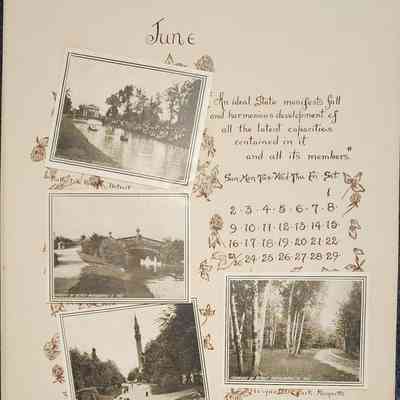 June
"An ideal State manifests full
and harmonious development of
all the latent capacities
contained in it
and all its members."
Sun Mon Tue Wed Thu Fri Sat
1
2 · 3 · 4 · 5 · 6 · 7 · 8
9 10 11 12 13 14 15
16 17 18 19 20 21 22
24 25 26 27 28 29
Detroit
Park, Marquette